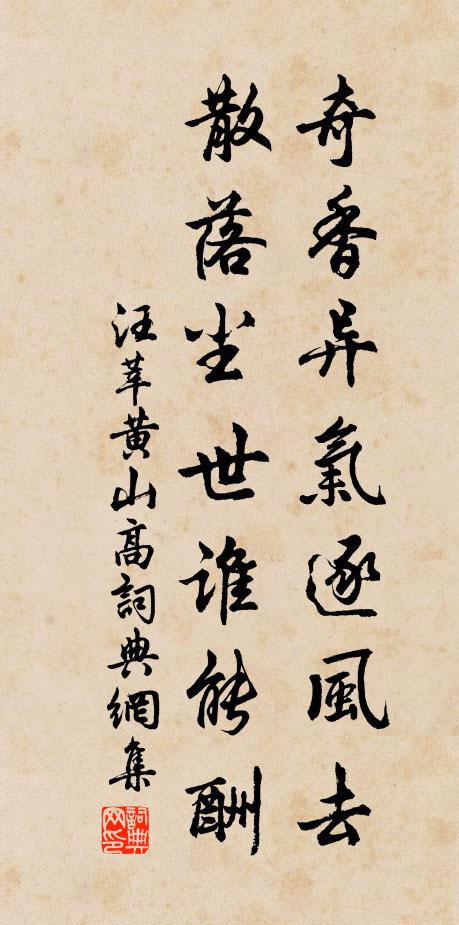 奇香异氣逐風去
散落尘世谁能酬
汪莘黄山高詞典網集
詞典网印